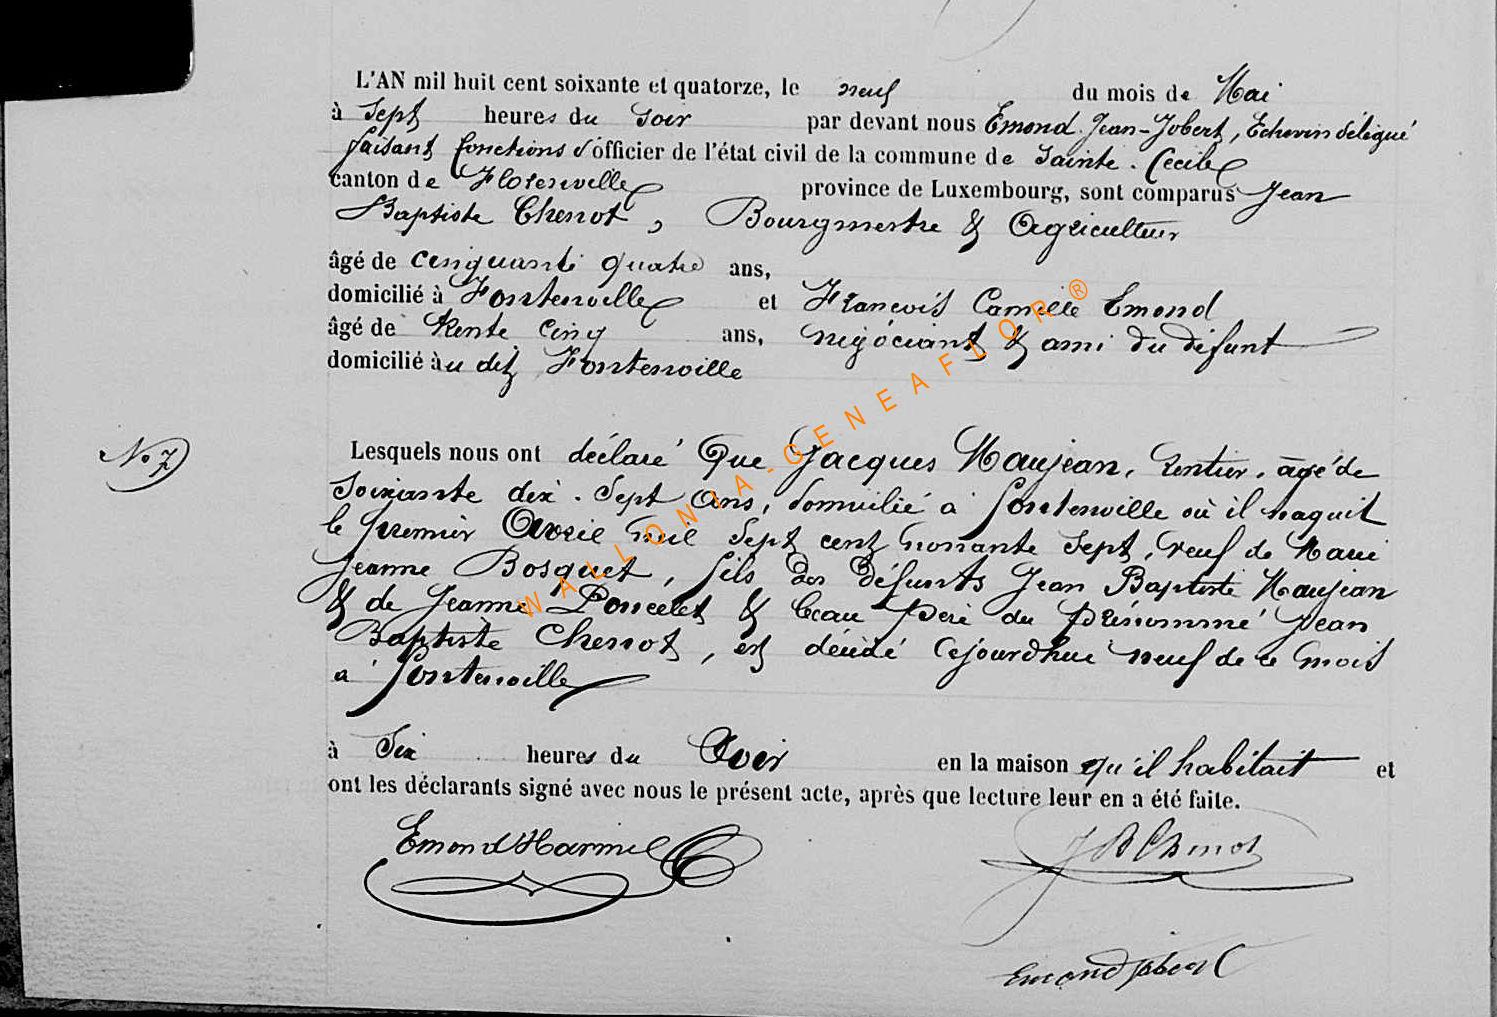 L'AN mil huit cent soixante et quatorze, le neuf du mois de Mai
à Sept heures du Soir par devant nous Emond Jean-Jobert, Echevin délégué
faisant fonctions d'officier de l'état civil de la commune de Sainte-Cécile
canton de Florenville province de Luxembourg, sont comparus Jean
Baptiste Chenot, Bourgmestre & Agriculteur
âgé de cinquante quatre ans,
domicilié à Fontenoille et François Camille Emond
âgé de trente cinq ans, négociant & ami du défunt
domicilié àu dit Fontenoille
No 7
Lesquels nous ont déclaré Que Jacques Maujean, rentier, âgé de
Soixante dix-Sept Ans, domicilié à fontenoille où il naquit
le premier Avril mil Sept cent nonante Sept, veuf de Marie
Jeanne Bosquet, fils des défunts Jean Baptiste Maujean
& de Jeanne Poncelet & beau père du prénommé Jean
Baptiste Chenot, est décédé cejourd'hui neuf de ce mois
à fontenoille
à Six heures du Soir en la maison qu'il habitait et
ont les déclarants signé avec nous le présent acte, après que lecture leur en a été faite.
Emond Harmel JB Chenot
Emond Jobert
WALLONIA-GENEAFLOR®